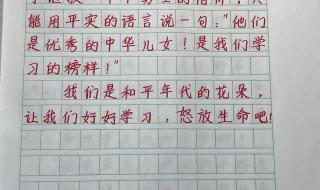 能用平实的语言说一句："他们
是优秀的中华儿女！是我们学
习的榜样！"
我们是和平年代的花朵，
让我们好好学习，怒放生命吧！